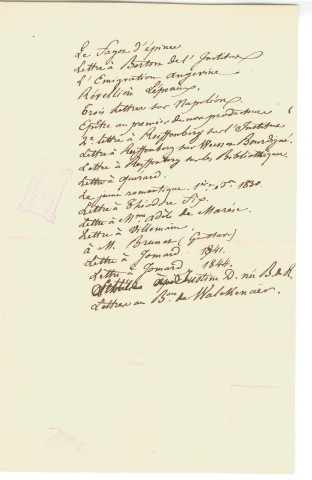 Le Fagot d'épines
Lettre à Berton de l'Institut
L'Emigration angevine
Réveillère Lépeaux.
Trois lettres sur Napoléon.
Epître au premier de mon producteur
2e lettre à Reiffenberg sur l'Institut
Lettre à Reiffenberg sur
Lettre à Reiffenberg sur les Bibliothèques
Lettre à Quérard.
Le jeune romantique. 1830.
Lettre à Théodore Fix.
Lettre à Mme Adèle de
Lettre à Villemain.
à M. Brunet (Gustave)
Lettre à Jomard 1841.
Lettre à Jomard 1844.
Justine D. née B. de R.
Lettres au Bon de Walckenaer.